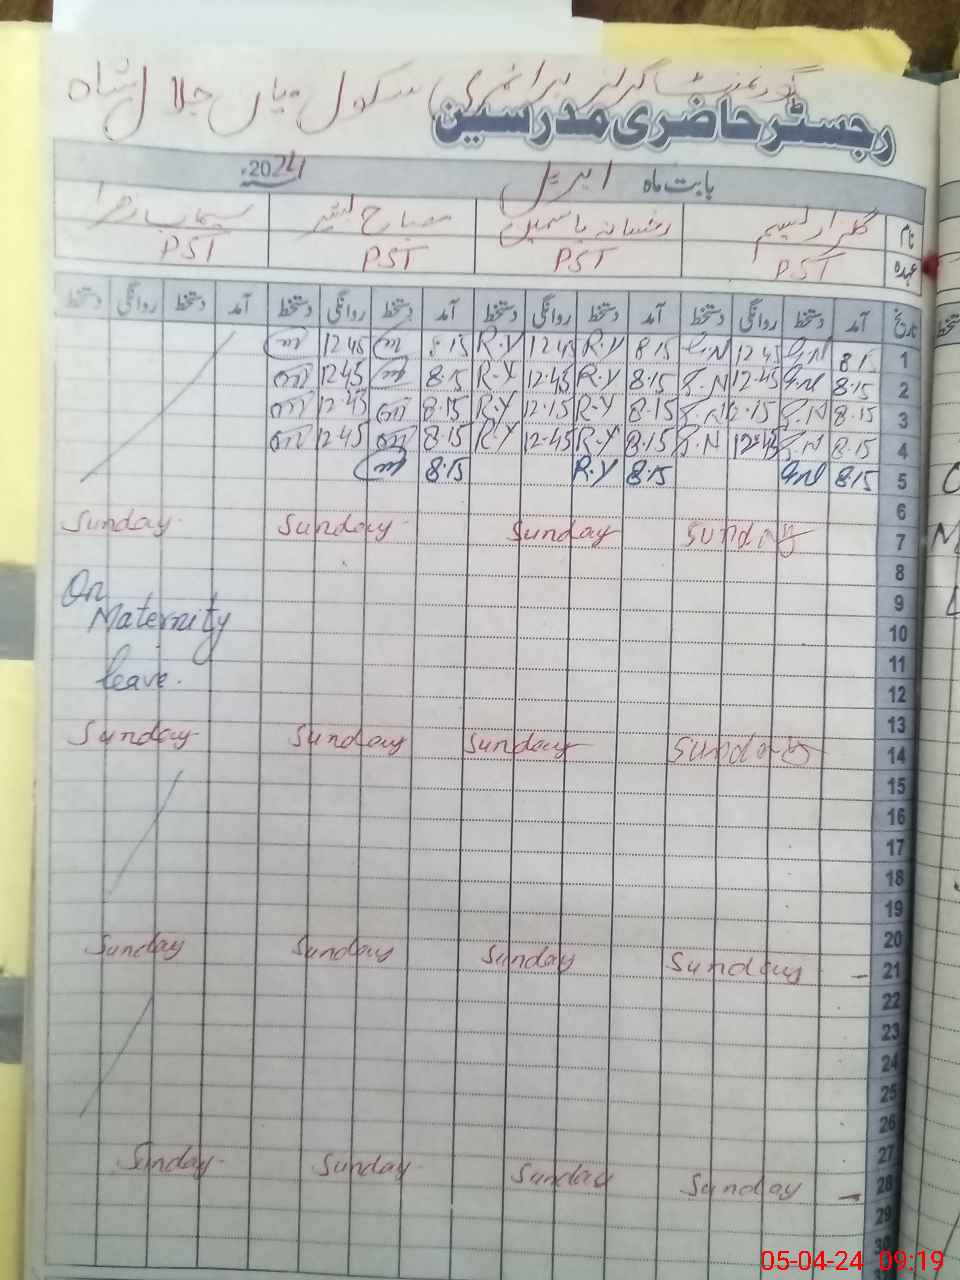 گورنمنٹ گرلز پرائمری سکول میاں جلال شاہ
رجسٹر حاضری مدرسین
بابت ماہ اپریل 2024ء
نام گلزار نسیم رخسانہ یاسمین مصباح بشیر سیماب زہرا
عہدہ PST PST PST PST
تاریخ آمد دستخط روانگی دستخط آمد دستخط روانگی دستخط آمد دستخط روانگی دستخط آمد دستخط روانگی دستخط
1 8.15 G.N 12 45 G.N 8.15 R.Y 12.45 R.Y 8.15 m 12 45 m
2 8.15 G.N 12.45 G.N 8.15 R.Y 12.45 R.Y 8.15 m 12.45 m
3 8.15 G.N 12.15 G.N 8.15 R.Y 12.15 R.Y 8.15 m 12.45 m
4 8.15 G.N 12.45 G.N 8.15 R.Y 12.45 R.Y 8.15 m 12 45 m
5 8.15 G.N 8.15 R.Y 8.15 m
6
7 Sunday Sunday Sunday Sunday
8
On
9
Maternity
10
11
leave.
12
13
14 Sunday Sunday Sunday Sunday
15
16
17
18
19
20
21 Sunday Sunday Sunday Sunday
22
23
24
25
26
27
28 Sunday Sunday Sunday Sunday
29
30
05-04-24 09:19